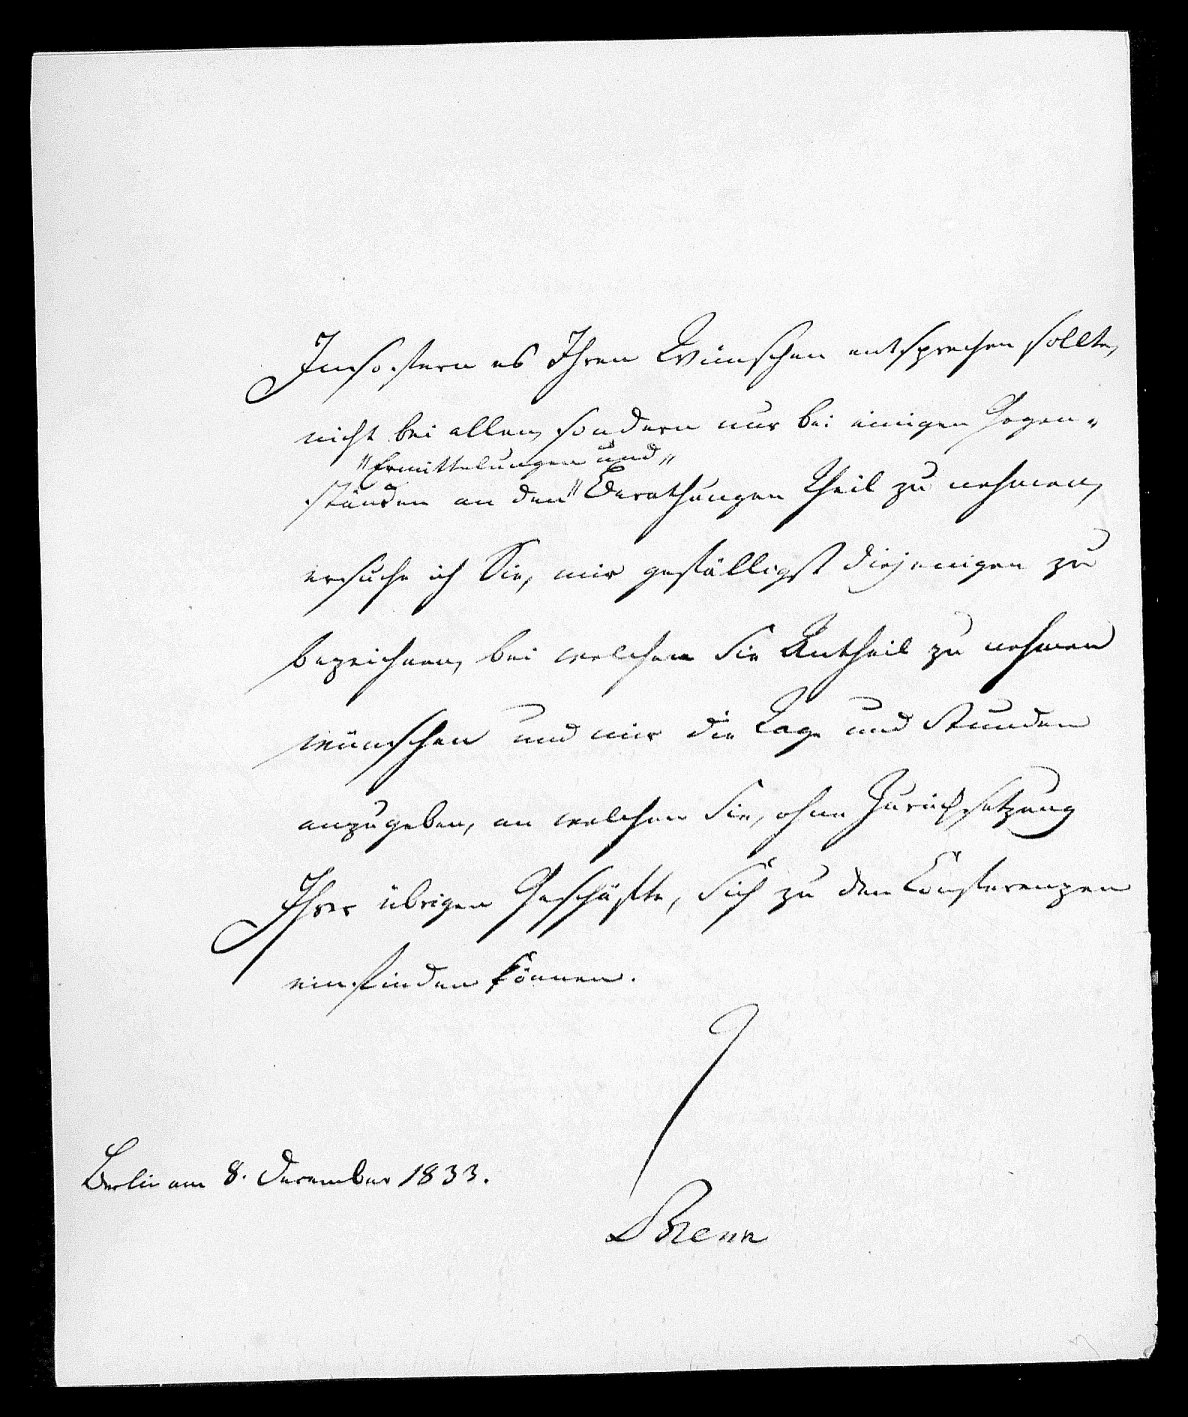 Insofern es Ihren Wünschen entsprechen sollte,
nicht bei allen, sondern nur bei einigen Gegen-
"Ermittelungen und"
ständen an den "Berathungen Theil zu nehmen,
ersuche ich Sie, mir gefälligst diejenigen zu
bezeichnen, bei welchen Sie Antheil zu nehmen
wünschen und mir die Tage und Stunden
anzugeben, an welchen Sie, ohne Zurücksetzung
Ihrer übrigen Geschäfte, Sich zu den Conferenzen
einfinden können.
Berlin am 8. December 1833.
Brenn